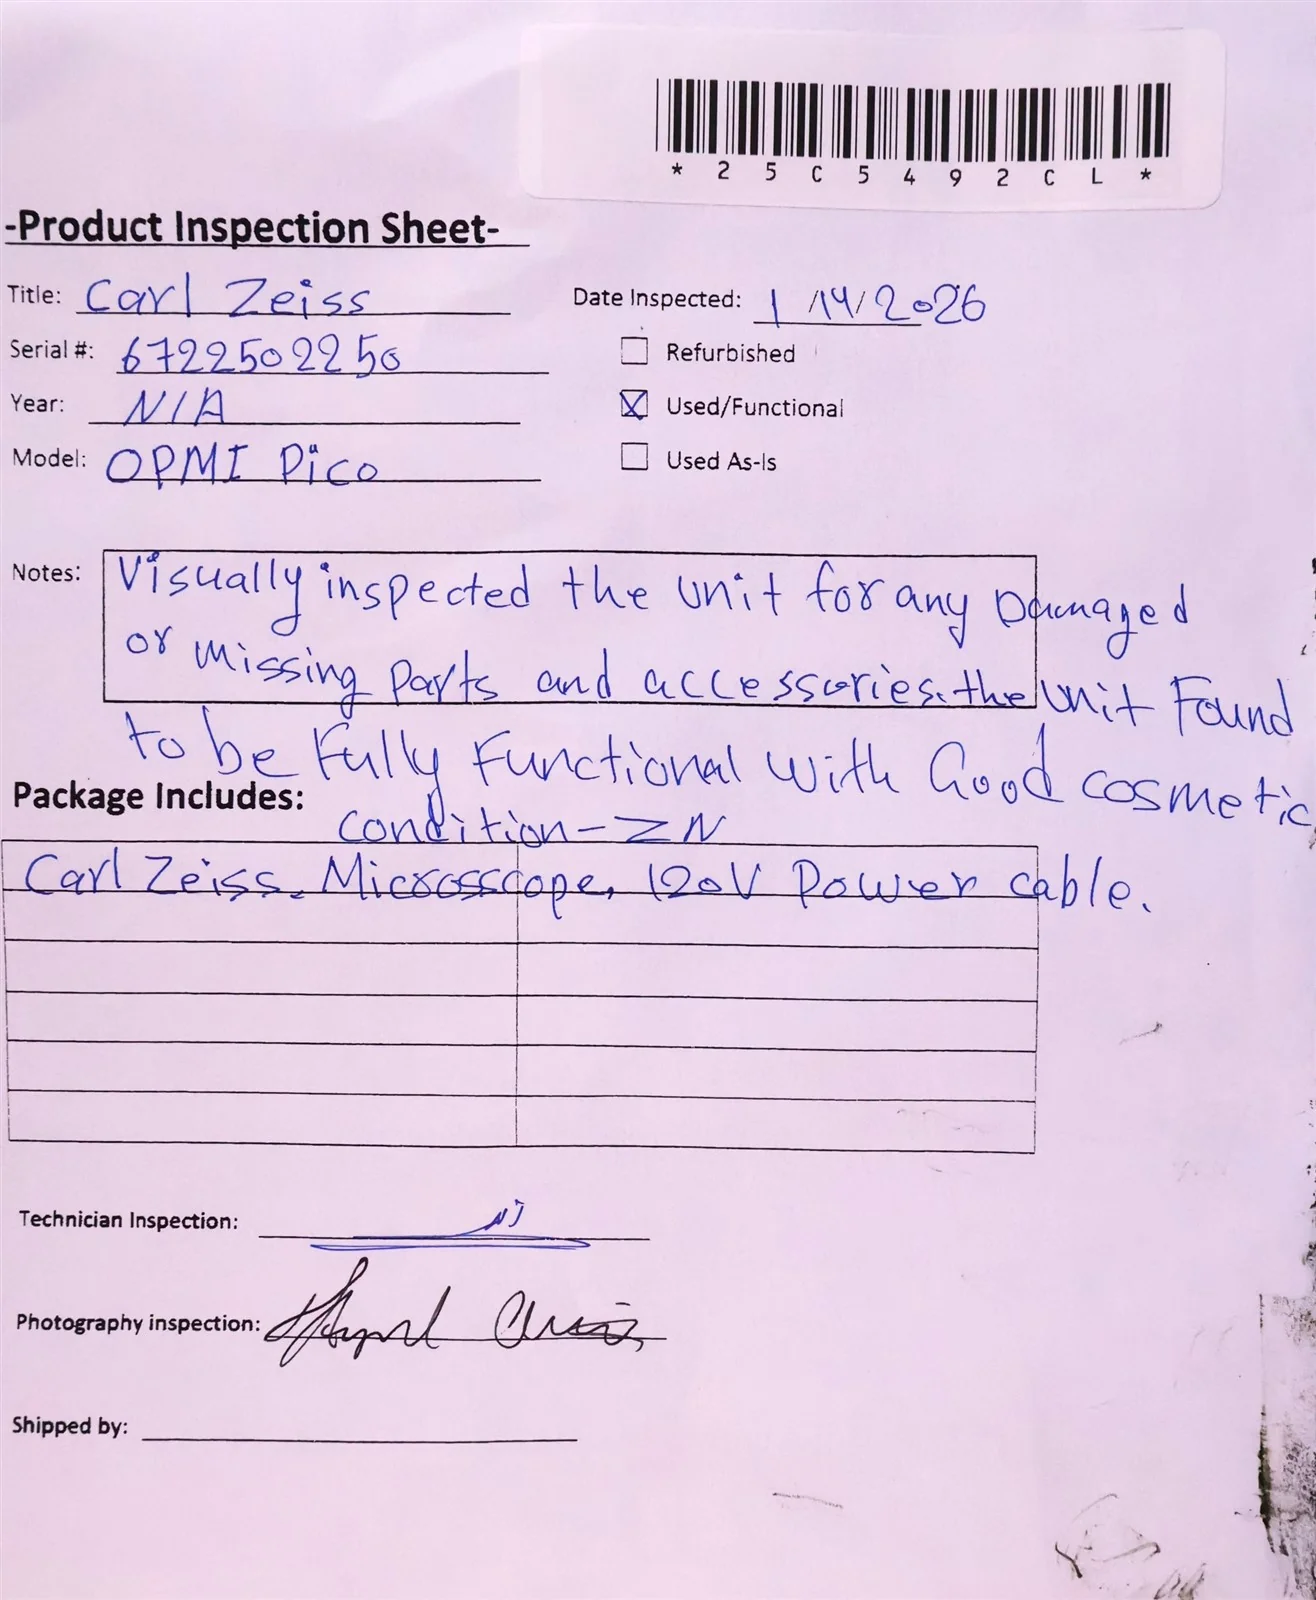 * 2 5 C 5 4 9 2 C L *
-Product Inspection Sheet-
Title: Carl Zeiss
Date Inspected: 1/14/2026
Serial #: 6722502250
Refurbished
Year: N/A
Used/Functional
Model: OPMI Pico
Used As-Is
Notes: Visually inspected the unit for any Damaged
or missing parts and accessories. the unit Found
to be Fully Functional with Good cosmetic
condition - ZN
Package Includes:
Carl Zeiss. Microsscope, 120V Power cable.
Technician Inspection:
Photography inspection:
Shipped by: